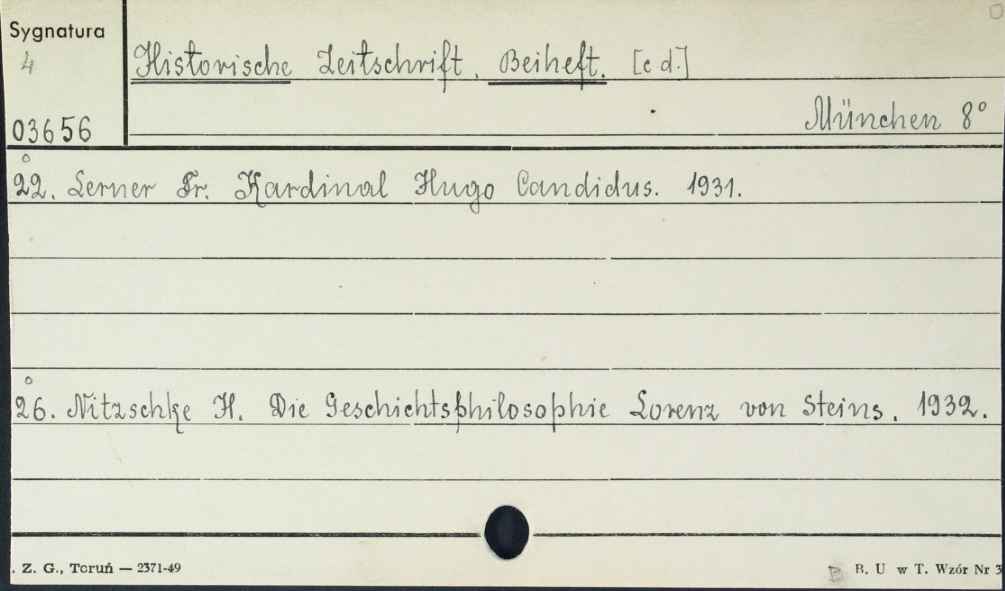 Sygnatura
4
Historische Zeitschrift. Beiheft. [c d.]
03656
München 8°
22. Lerner Fr. Kardinal Hugo Candidus. 1931.
26. Nitzschke H. Die Geschichtsphilosophie Lorenz von Steins. 1932.
. Z. G., Toruń — 2371-49
B. U w T. Wzór Nr 3